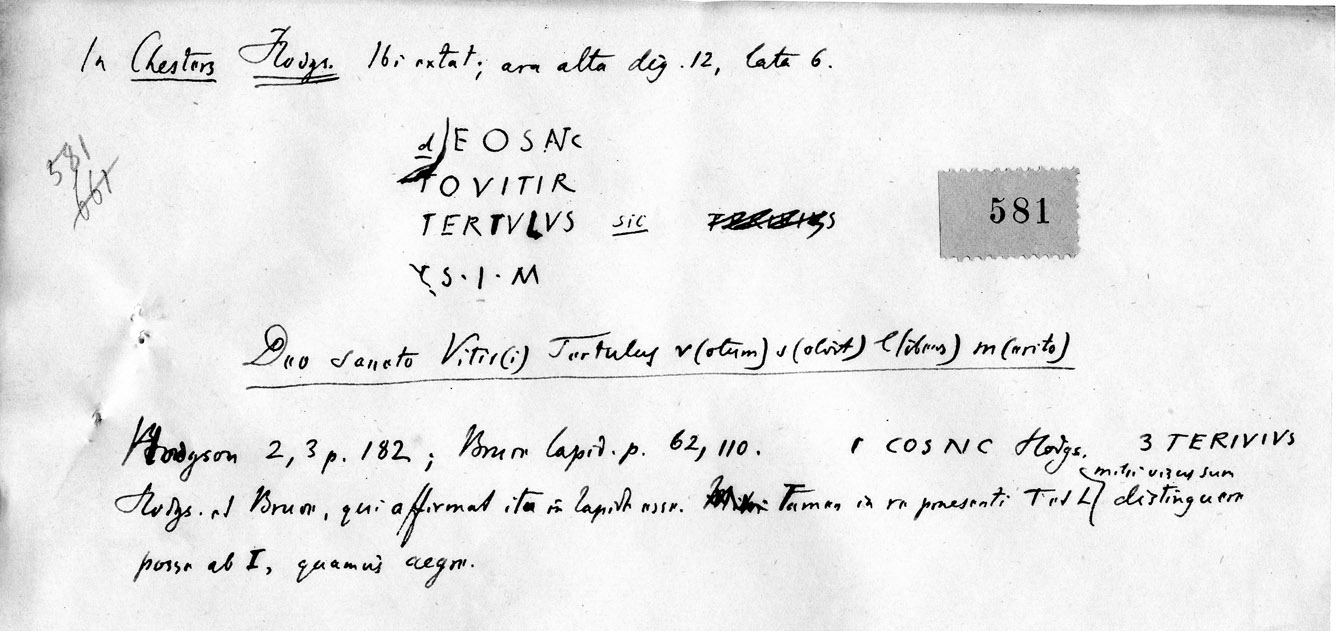 In Chesters Hodgs. Ibi extat; ara alta dig. 12, lata 6.
581
661
d EOSANC
TOVITIR
TERTVLVS sic
581
V S·I·M
Deo sancto Vitir(i) Tertulus v(otum) s(olvit) l(ibens) m(erito)
Hodgson 2, 3 p. 182; Bruce lapid. p. 62, 110. 1 COSNC Hodgs. 3 TERIVIVS
mihi visus sum
Hodgs. et Bruce, qui affirmat ita in lapide esse. Tamen in re praesenti T et L distinguere
posse ab I, quamvis aegre.